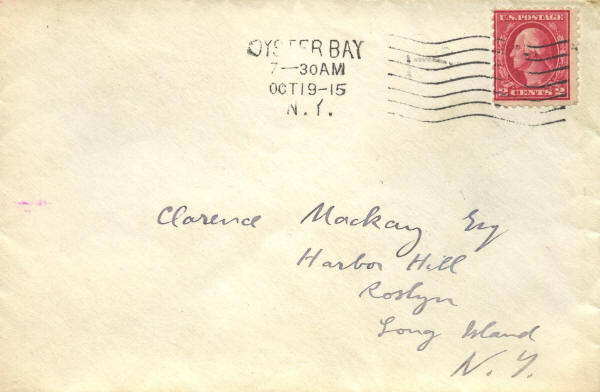 OYSTER BAY
7-30AM
OCT19-15
N.Y.
U.S. POSTAGE
2 CENTS 2
Clarence Mackay Esq
Harbor Hill
Roslyn
Long Island
N.Y.